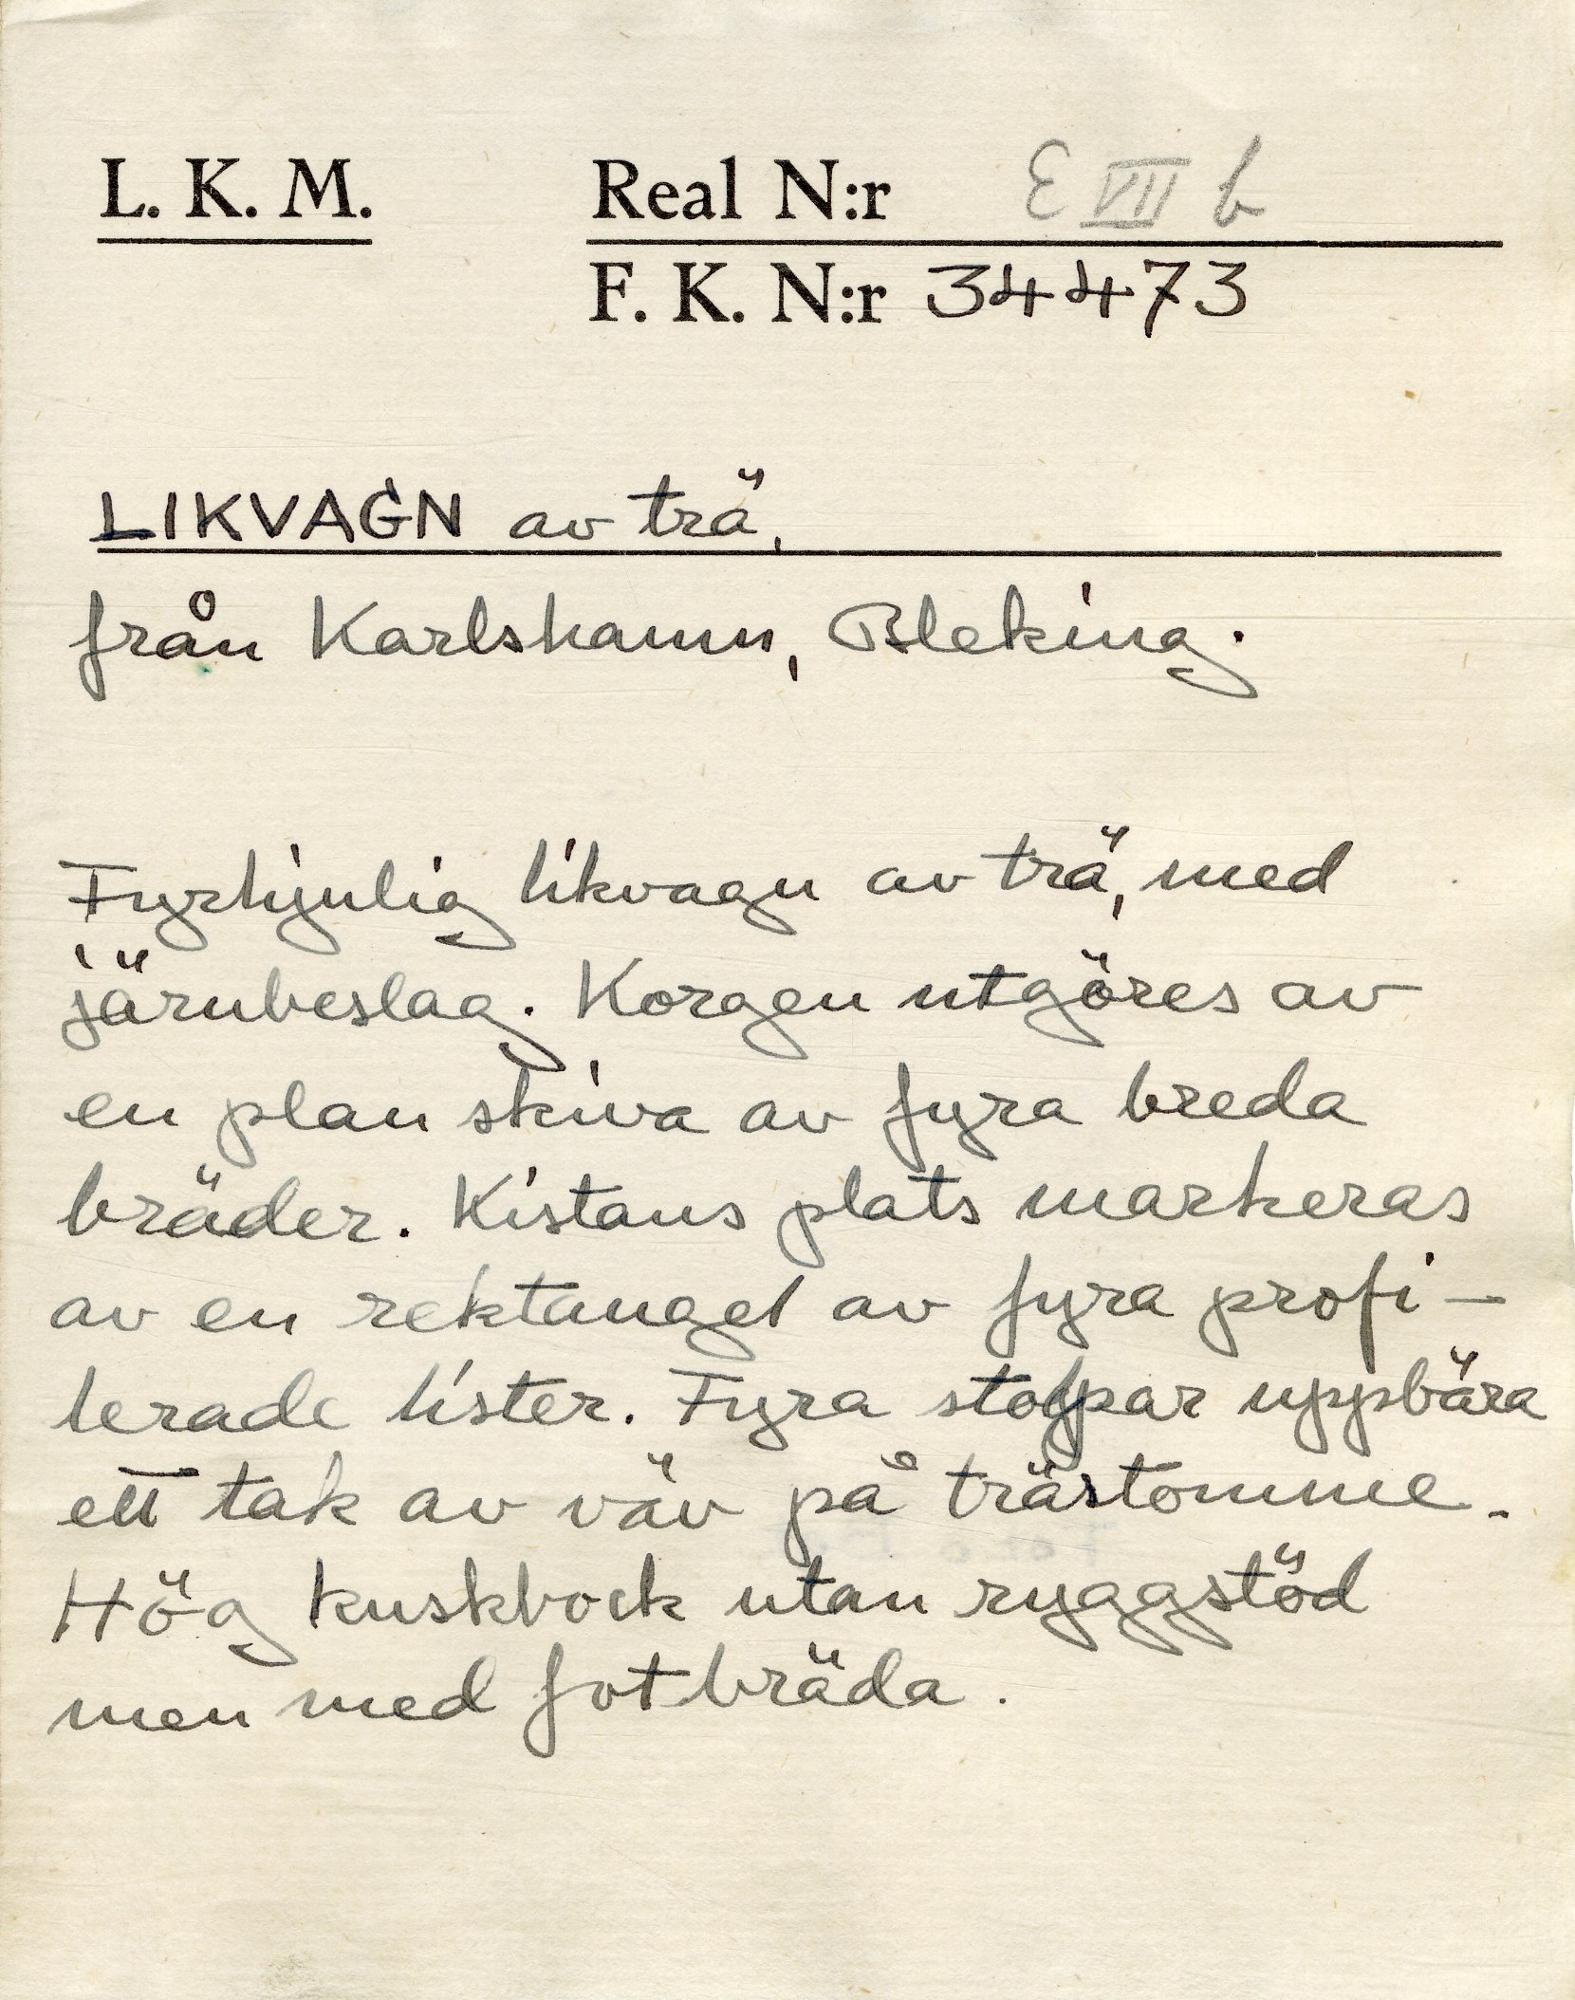 L. K. M. Real N:r E VII b
F. K. N:r 34473
LIKVAGN av trä,
från Karlshamn, Bleking.
Fyrhjulig likvagn av trä, med
järnbeslag. Korgen utgöres av
en plan skiva av fyra breda
bräder. Kistans plats markeras
av en rektangel av fyra profi-
lerade lister. Fyra stolpar uppbära
ett tak av väv på trästomme.
Hög kuskbock utan ryggstöd
men med fotbräda.